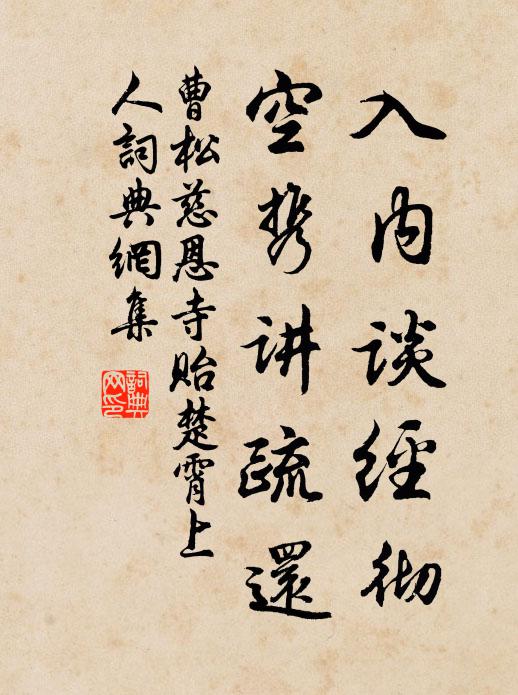 入内谈經彻
空携讲疏還
曹松慈恩寺贻楚霄上
人詞典網集
詞典
网印